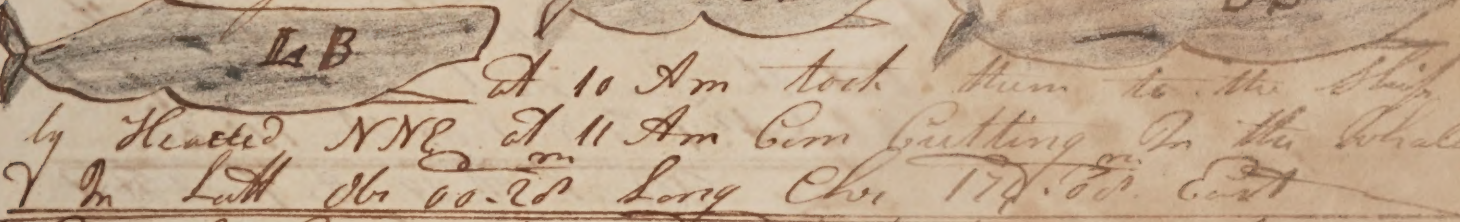 LB
at 10 Am took them to the Ship
by Headed NNE at 11 Am Com Cutting In the Whale
In Latt Obs 00.28 Long Chr 17 .08 East